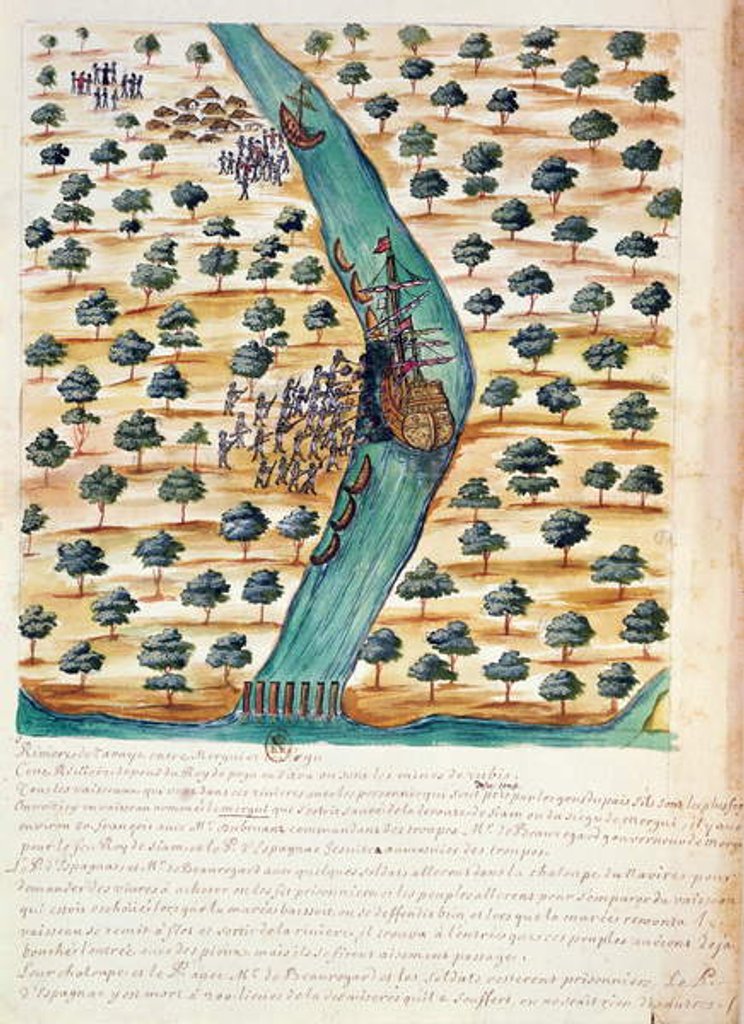 Riviere de Tavaye entre Mergui et
Cette Riviere depend du Roy de pegu ou d'ava ou sont les mines de rubis.
Tous les vaisseaux qui dans ces rivieres sont pris par les gens du pais s'ils sont les plus for
un vaisseau nommé le mergui que s'estoit sauvé de la deroute de Siam ou du siege de mergui, il y avo
environ françois avec Mr. commandant des troupes, Mr. de Beauregard gouverneur de merg
pour le feu Roy de Siam et le P. d'Espagnac Jesuite aumosnier des troupes.
Le P. d'Espagnac et Mr. de Beauregard avec quelques soldats allerent dans la chaloupe du Navire pour
demander des vivres à acheter on les fit prisonniers et les peuples allerent pour s'emparer du vaisseau
qui estoit eschoüé lorsque la marée baissoit on se deffendit bien et lorsque la marée remonta l
vaisseau se remit à flot et sortit de la riviere, il trouva à l'entrée que ces peuples avoient deja
bouché l'entrée avec des pieux mais ils se firent aisement passage.
Leur chaloupe et le P. avec Mr. de Beauregard et les soldats resterent prisonniers. Le P.
d'Espagnac y est mort à lieues de la des miseres qu'il a souffert, on ne sçait rien des autres.